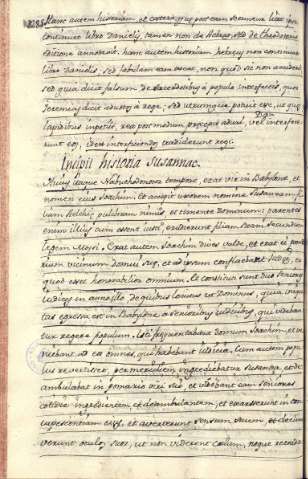 Hanc autem historiam, et cætera quæ post eam
continuo libro Danielis, tamen non de Hebræo, sed de Theodotionis
editione annotavi. hanc autem historiam hebræi non continent
libro Danielis, sed fabulam eam esse, non quod
sed quia dicit falsum de sacerdotibus a populo interfectis, quos
Jeremias dicit adustos a rege; sed utrumque potest esse, ut
lapidibus impetiti, rea postmodum
sunt eos, idem interficiendos tradiderunt regi.
Incipit historia Susannæ.
Hujus itaque Nabuchodonosor tempore, erat vir in Babylone, et
nomen ejus Joachim: et accepit uxorem nomine Susannam, fi
liam Helchiæ, pulchram nimis, et timentem Dominum: parentes
enim illius cum essent justi, erudierunt filiam suam secundum
legem Moysi. Erat autem Joachim dives valde, et erat ei poma
rium vicinum domui suæ, et ad ipsum confluebant Judæi, eo
quod esset honorabilior omnium. et constituti sunt duo senes
judices in anno illo, de quibus locutus est Dominus, quia iniqui
tas egressa est in Babylone a senioribus judicibus, qui videban
tur regere populum. Isti frequentabant domum Joachim, et ve
niebant ad eos omnes, qui habebant judicia. Cum autem popu
lus revertisset, per meridiem ingrediebatur Susanna, et de
ambulabat in pomario viri sui, et videbant eam seniores
cotidie ingredientem, et deambulantem, et exarserunt in con
cupiscentiam ejus, et averterunt sensum suum, et decli
verunt oculos suos, ut non viderent cœlum, neque recorda